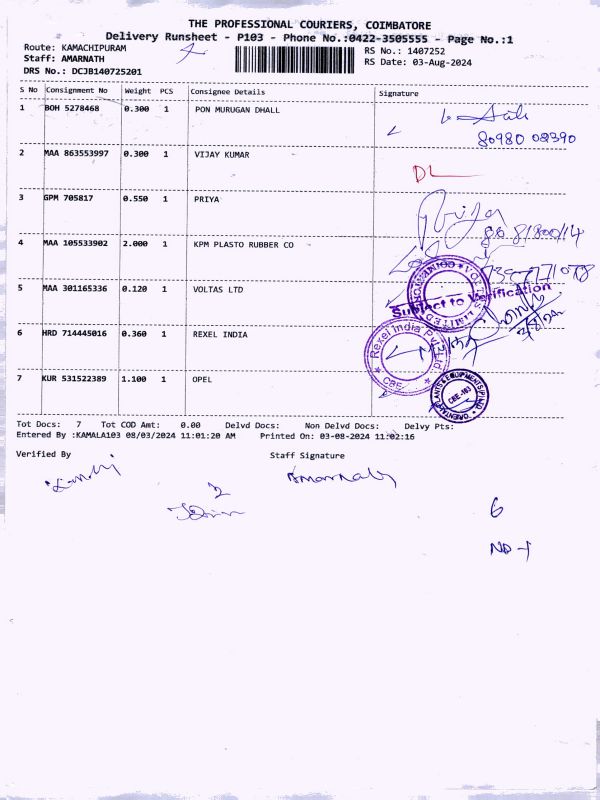 THE PROFESSIONAL COURIERS, COIMBATORE
Delivery Runsheet - P103 - Phone No.:0422-3505555 - Page No.:1
Route: KAMACHIPURAM
RS No.: 1407252
Staff: AMARNATH
RS Date: 03-Aug-2024
DRS No.: DCJB140725201
S No Consignment No Weight PCS Consignee Details Signature
1 BOH 5278468 0.300 1 PON MURUGAN DHALL
80980 08390
2 MAA 863553997 0.300 1 VIJAY KUMAR
DL
3 GPM 705817 0.550 1 PRIYA
Priya
4 MAA 105533902 2.000 1 KPM PLASTO RUBBER CO
5 MAA 301165336 0.120 1 VOLTAS LTD
Subject to Verification
6 HRD 714445016 0.360 1 REXEL INDIA
Rexel India Pvt Ltd
CBE
7 KUR 531522389 1.100 1 OPEL
CBE-103
Tot Docs: 7 Tot COD Amt: 0.00 Delvd Docs: Non Delvd Docs: Delvy Pts:
Entered By :KAMALA103 08/03/2024 11:01:20 AM Printed On: 03-08-2024 11:02:16
Verified By Staff Signature
Amarnath
6
ND-1